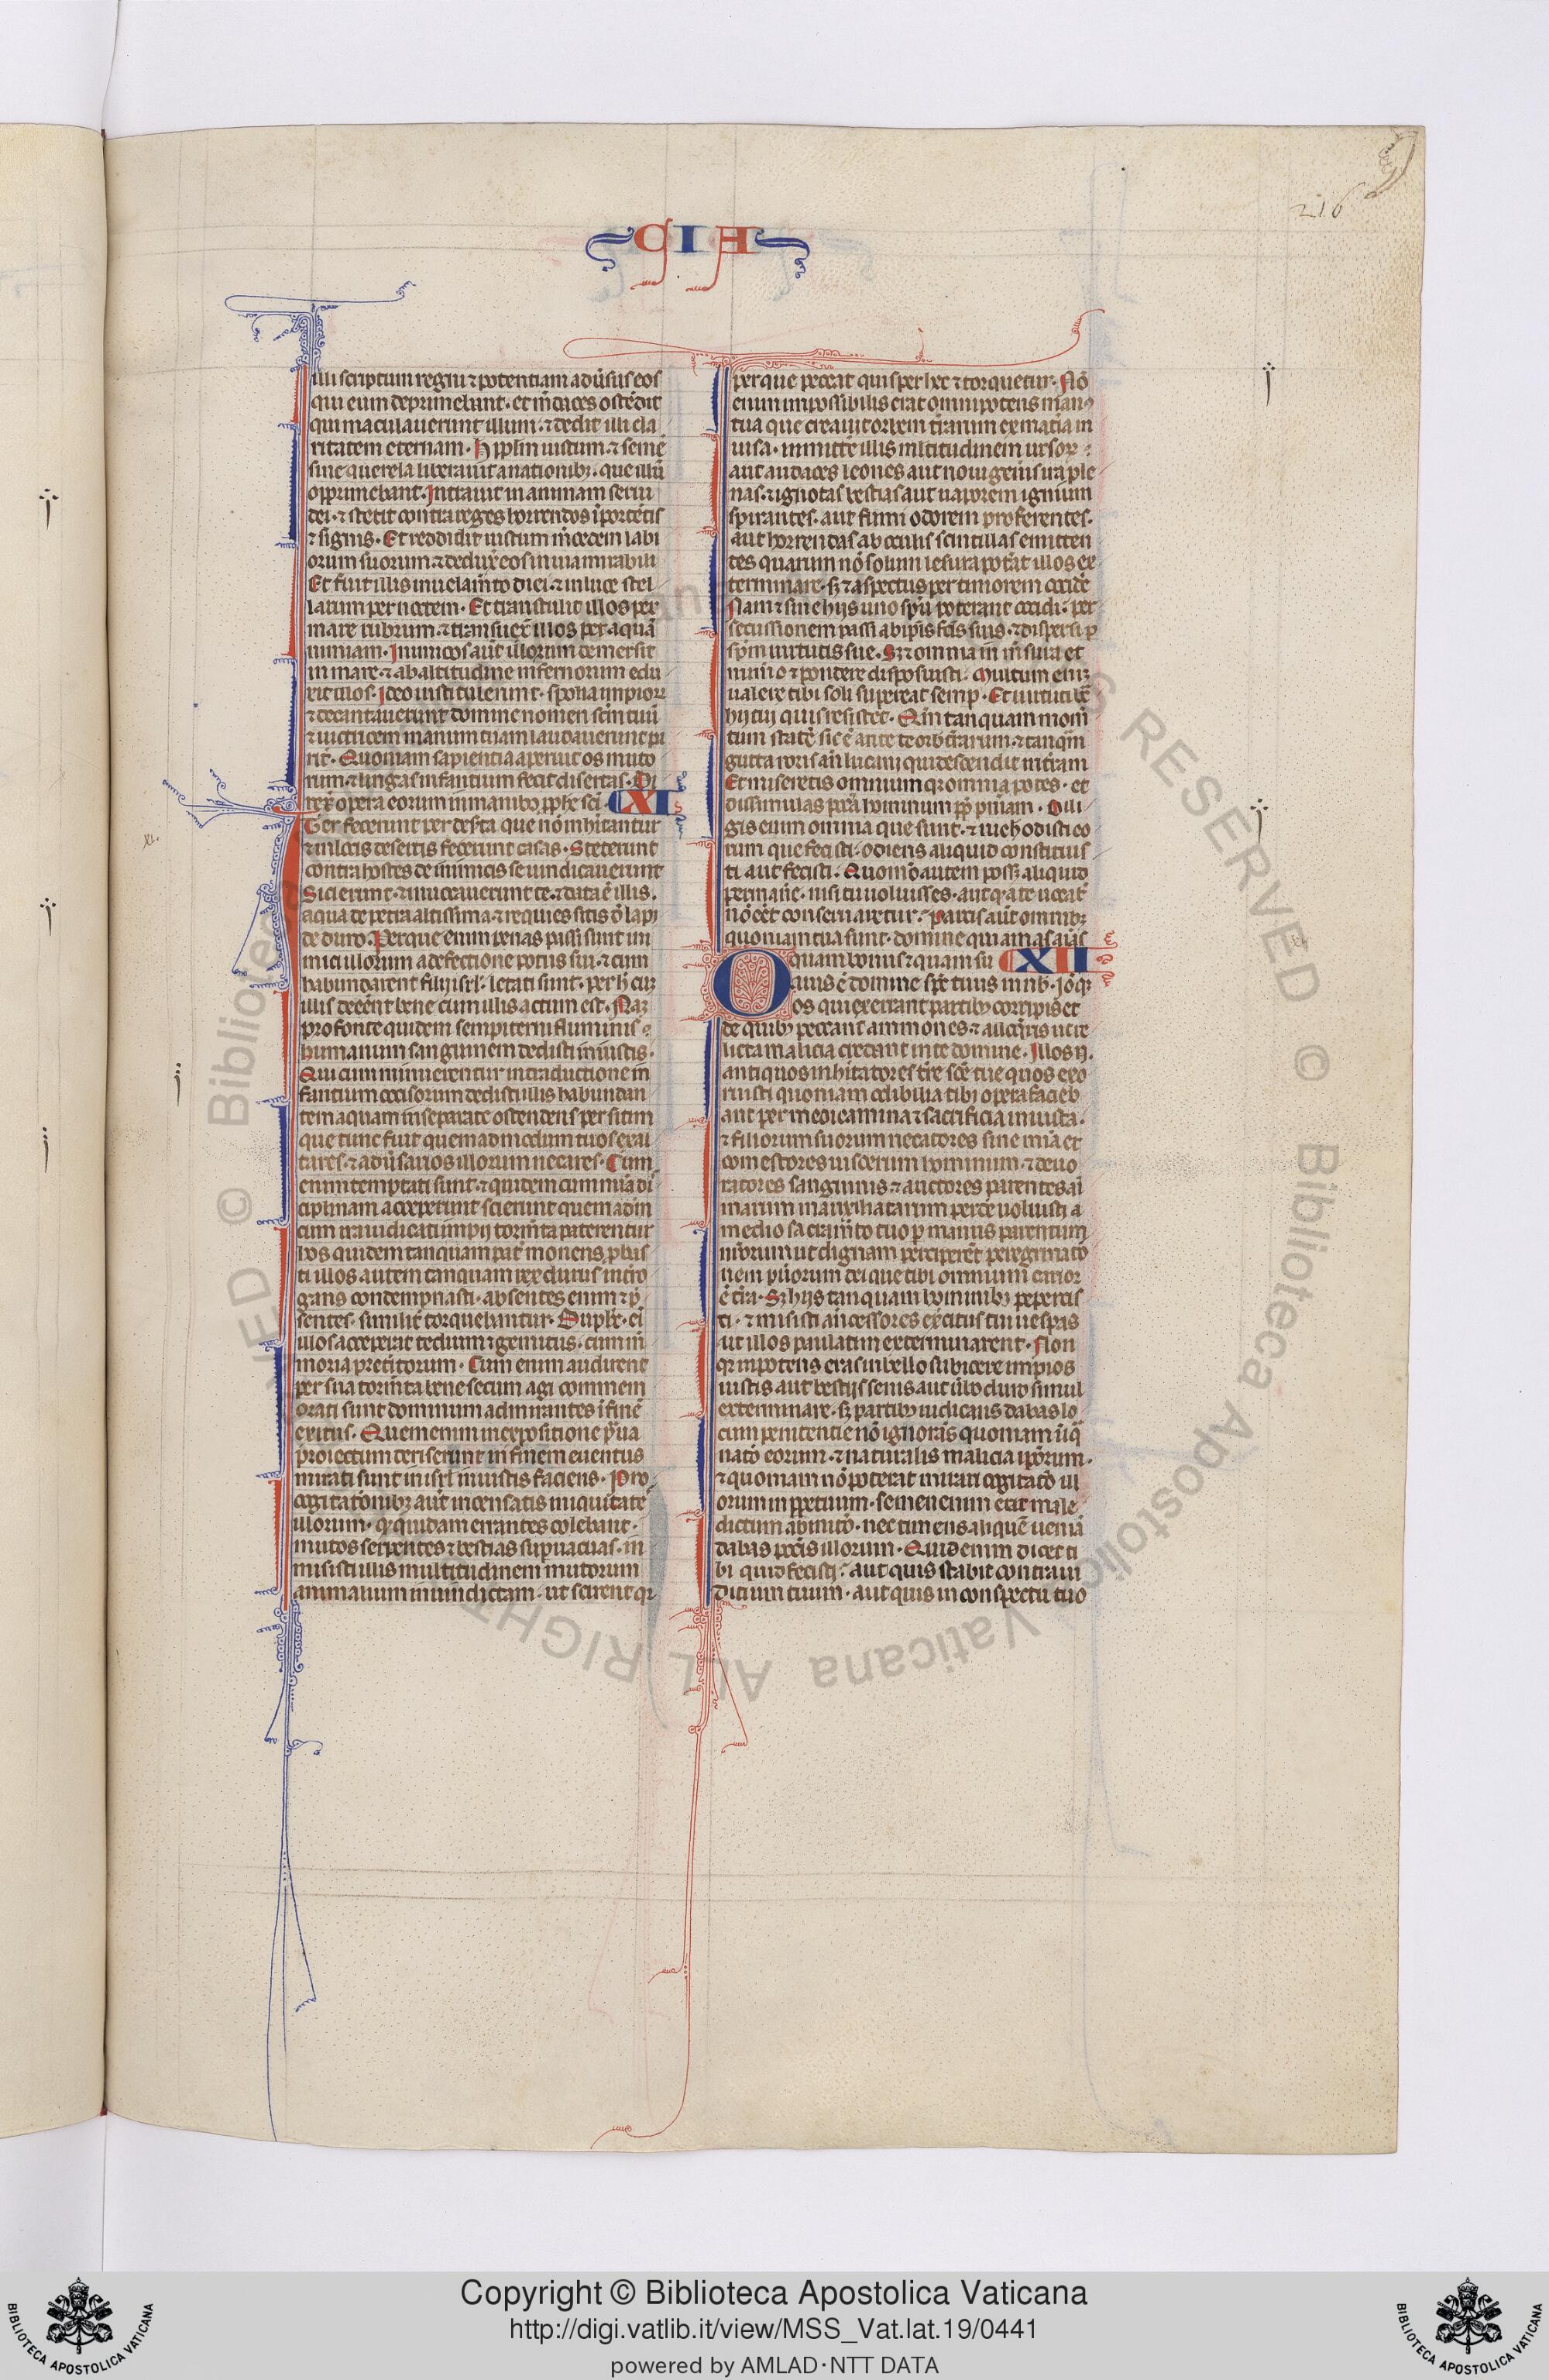 216
GIA
illi sceptrum regni ⁊ potentiam adv̄sus eos
qui eum deprimebant· et m̄daces ostēdit
qui maculaverunt illum· ⁊ dedit illi cla
ritatem eternam· Hec pplm iustum ⁊ semē
sine querela liberavit a nationib;· que illū
opprimebant· Intravit in animam servi
dei· ⁊ stetit contra reges horrendos ī portētis
⁊ signis· Et reddidit iustum m̄cedem labi
orum suorum ⁊ deduxͭ eos in via mirabili
Et fuit illis in velam̄to diei· ⁊ in luce stel
larum per noctem· Et transtulit illos per
mare rubrum· ⁊ transvexͭ illos per aquā
nimiam· Inimicos aūt illorum demersit
in mare· ⁊ ab altitudine infernorum edu
xit illos· Ideo iusti tulerunt· spolia impiorꝝ
⁊ decantaverunt domine nomen scm̄ tuū
⁊ victricem manum tuam laudaverunt pa
rit̄· Quoniam sapientia aperuit os muto
rum· ⁊ lingas infantium fecit disertas· Di
rexͭ opera eorum in manibꝰ pphe sci· CXI
Iter fecerunt per deserta que nō inhitantur
⁊ in locis desertis fecerunt casas· Steterunt
contra hostes ⁊ de inimicis se vindicaverunt
Sitierunt· ⁊ invocaverunt te· ⁊ data ē illis·
aqua de petra altissima· ⁊ requies sitis d̄ lapi
de duro· Per que enim penas passi sunt ini
mici illorum a defectione potus sui· ⁊ cum
habundarent filij isrl· letati sunt· per h̄ cū
illis deeēnt bene cum illis actum est· Naꝫ
pro fonte quidem sempiterni fluminis·
humanum sanguinem dedisti iniustis·
Qui cum minuerentur in traductione in
fantium occisorum dedisti illis habundan
tem aquam inseparate ostendens per sitim
que tunc fuit quemadmodum tuos exal
tares· ⁊ adv̄sarios illorum necares· Cum
enim temptati sunt· ⁊ quidem cum mīa di
ciplinam acceperunt scierunt quemadm̄
cum ira iudicati impij torm̄ta paterentur
hos quidem tanquam pat̄ monens pbas
ti illos autem tanquam rex durus intro
gans condempnasti· absentes enim ⁊ p̄
sentes· similit̄ torquebantur· Duplex ei
illos acceperat tedium ⁊ gemitus· cum m̄
moria preteritorum· Cum enim audirent
per sua torm̄ta bene secum agi commem
orati sunt dominum admirantes ī finē
exitus· Quem enim in expositione p̄va
proiectum deriserunt in finem eventus
mirati sunt in isrl iniustis faciens· Pro
cogitationib; aūt incensatis iniquitatē
illorum· qꝛ quidam errantes colebant·
mutos serpentes ⁊ bestias supvacuas· in
misisti illis multitudinem mutorum
animalium in vindictam· ut scirent qꝛ
per que peccat quis per hec ⁊ torquetur· Nō
enim impossibilis erat omnipotens manꝰ
tua que creavit orbem t̄rarum ex mat̄ia in
visa· inmitte͛ illis mltitudinem ursoꝝ·
aut audaces leones aut novi gen̄is ira ple
nas· ⁊ ignotas bestias aut vaporem ignium
spirantes· aut fumi odorem proferentes·
aut horrendas ab oculis scintillas emitten
tes quarum nō solum lesura potat̄ illos ex
terminare· sꝫ ⁊ aspectus per timorem occide͛
Nam ⁊ sine hijs uno spū poterant occidi· per
secussionem passi ab ipis fc̄is suis· ⁊ dispersi p
spm̄ virtutis sue· Sꝫ ⁊ omnia in m̄sura et
num̄o ⁊ pondere disposuisti· Multum enī
valere tibi soli supererat semp· Et virtuti bͨ
hij tuj quis resistet· Qm̄ tanquam mom̄
tum statē sic ē ante te orb t̄rarum· ⁊ tanq̄m
gutta roris an̄ lucanj qui descendit in t̄ram
Et misereris omnium qꝛ omnia potes· et
dissimulas pccā hominum pp̄ pn̄iam· Dili
gis enim omnia que sunt· ⁊ nich̄ odisti eo
rum que fecisti· odiens aliquid constituis
ti aut fecisti· Quomō autem possꝫ aliquid
permane͛· nisi tu voluisses· aut q̄ a te vocat̄
nō eēt conservaretur· Parcis aūt omnib;
quoniam tua sunt· domine qui amas aīas
O quam bonus ⁊ quam su CXII
avis ē domine sp̄c tuus in nb̄· Iōq̄ꝫ
os qui exerrant partibꝰ corripis et
de quibꝰ peccant ammones ⁊ alloq̄ris ut re
licta malicia credant in te domine· Illos n̄
antiquos inhitatores tr̄e sc̄e tue quos exo
rruisti quoniam odibilia tibi opera facieb
ant per medicamina ⁊ sacrificia iniusta·
⁊ filiorum suorum necatores sine mīa et
comestores viscerum hominum· ⁊ devo
ratores sanguinis ⁊ auctores parentes aī
marum inauxiliatarum perde͛ voluisti a
medio sacram̄to tuo p manus parentum
nr̄orum ut dignam perciperēt peregrinatō
nem pūorum dei que tibi omnium carior
ē t̄ra· Sꝫ hijs tanquam hominibꝰ pepercis
ti· ⁊ misisti an̄cessores ex̄citus tui vespas
ut illos paulatim exterminarent· Non
qꝛ inpotens eras in bello subicere impios
iustis aut bestijs sevis aut v̄bo duro simul
exterminare· sꝫ partibꝰ iudicans dabas lo
cum penitentie nō ignorās quoniam nīq̄
natō eorum· ⁊ naturalis malicia ipōrum·
⁊ quoniam nō poterat mutari cogitatō ill
orum in ppetuum· semen enim erat male
dictum ab initō· nec timens aliquē veniā
dabas pccīs illorum· Quid enim dicet ti
bi quid fecisti· aut quis stabit contra iu
dicium tuum· aut quis in conspectu tuo
Copyright © Biblioteca Apostolica Vaticana
http://digi.vatlib.it/view/MSS_Vat.lat.19/0441
powered by AMLAD·NTT DATA
BIBLIOTECA APOSTOLICA VATICANA
BIBLIOTECA APOSTOLICA VATICANA